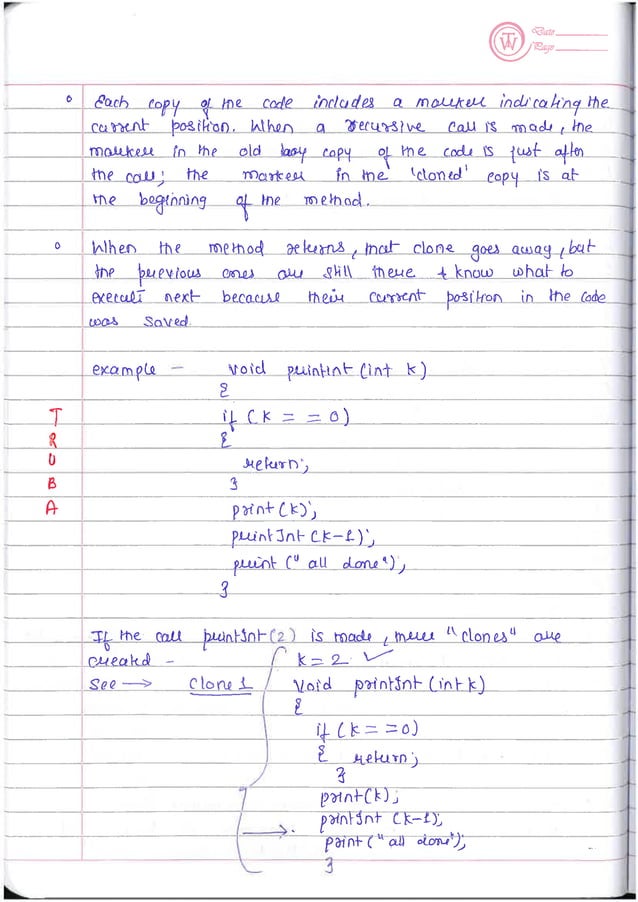 Date
Page
Each copy of the code includes a marker indicating the
current position. When a recursive call is made, the
marker in the old copy of the code is just after
the call; the marker in the 'cloned' copy is at
the beginning of the method.
When the method returns, that clone goes away, but
the previous ones are still there & know what to
execute next because their current position in the code
was saved.
example - void printint (int k)
{
if (k = = 0)
{
return;
}
print(k);
printInt (k-1);
print (" all done");
}
T
R
U
B
A
If the call printInt(2) is made, there "clones" are
created -
k = 2 ✓
See → Clone 1 void printInt (int k)
{
if (k = = 0)
{ return;
}
print(k);
→ printInt (k-1);
print (" all done");
}